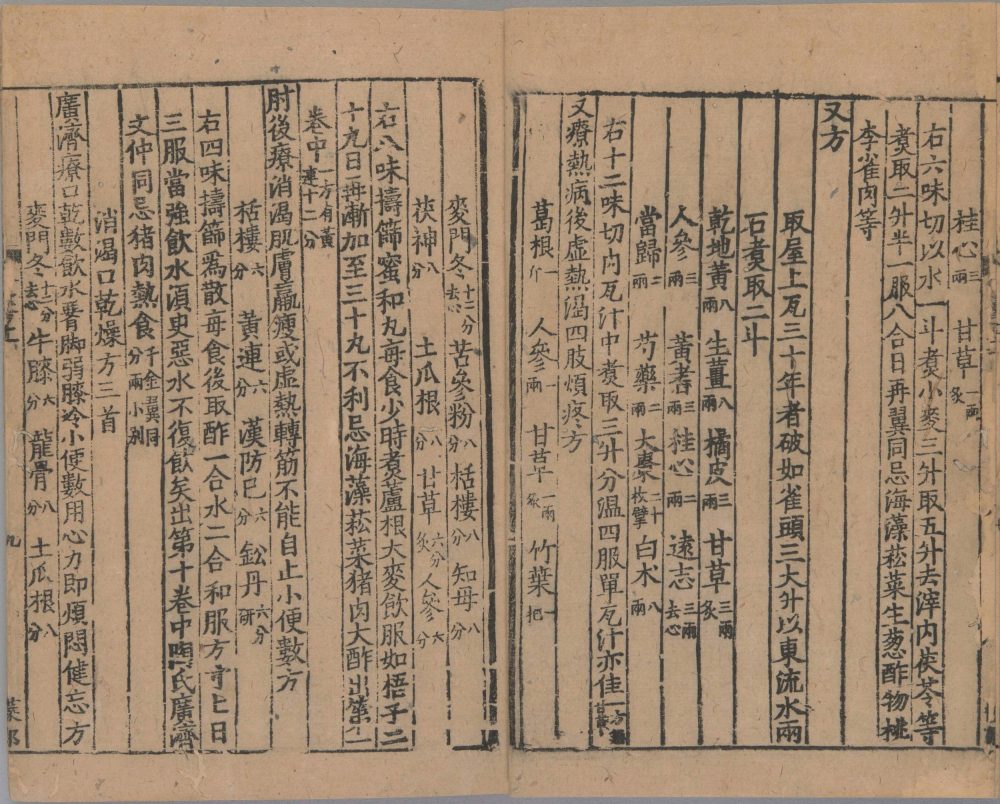 桂心三兩 甘草一兩炙
右六味切以水一斗煑小麥三升取五升去滓內茯苓等
煑取二升半一服八合日再翼同忌海藻菘菜生葱酢物桃
李雀肉等
又方
取屋上瓦三十年者破如雀頭三大升以東流水兩
石煑取二斗
乾地黃八兩 生薑八兩 橘皮三兩 甘草三兩炙
人參三兩 黃耆三兩 桂心二兩 遠志三兩去心
當歸二兩 芍藥二兩 大棗二十枚擘 白木八兩
右十二味切內瓦汁中煑取三升分溫四服單瓦汁亦佳一方
又療熱病後虛熱渴四肢煩疼方
葛根一斤 人參一兩 甘草一兩炙 竹葉一把
麥門冬十二分去心 苦參粉八分 栝樓八分 知母八分
茯神八分 土瓜根八分 甘草六分炙 人參六分
右八味擣篩蜜和丸每食少時煑蘆根大麥飲服如梧子二
十丸日再漸加至三十丸不利忌海藻菘菜猪肉大酢出第一
卷中一方有黃連十二分
肘後療消渴肌膚羸瘦或虛熱轉筋不能自止小便數方
栝樓六分 黃連六分 漢防巳六分 鈆丹六分研
右四味擣篩爲散每食後取酢一合水二合和服方寸匕日
三服當強飲水須臾惡水不復飲矣出第十卷中陶氏廣濟
文仲同忌猪肉熱食千金翼同分兩小別
消渴口乾燥方三首
廣濟療口乾數飲水腎脚弱膝冷小便數用心力即煩悶健忘方
麥門冬十二分去心 牛膝六分 龍骨八分 土瓜根八分
九